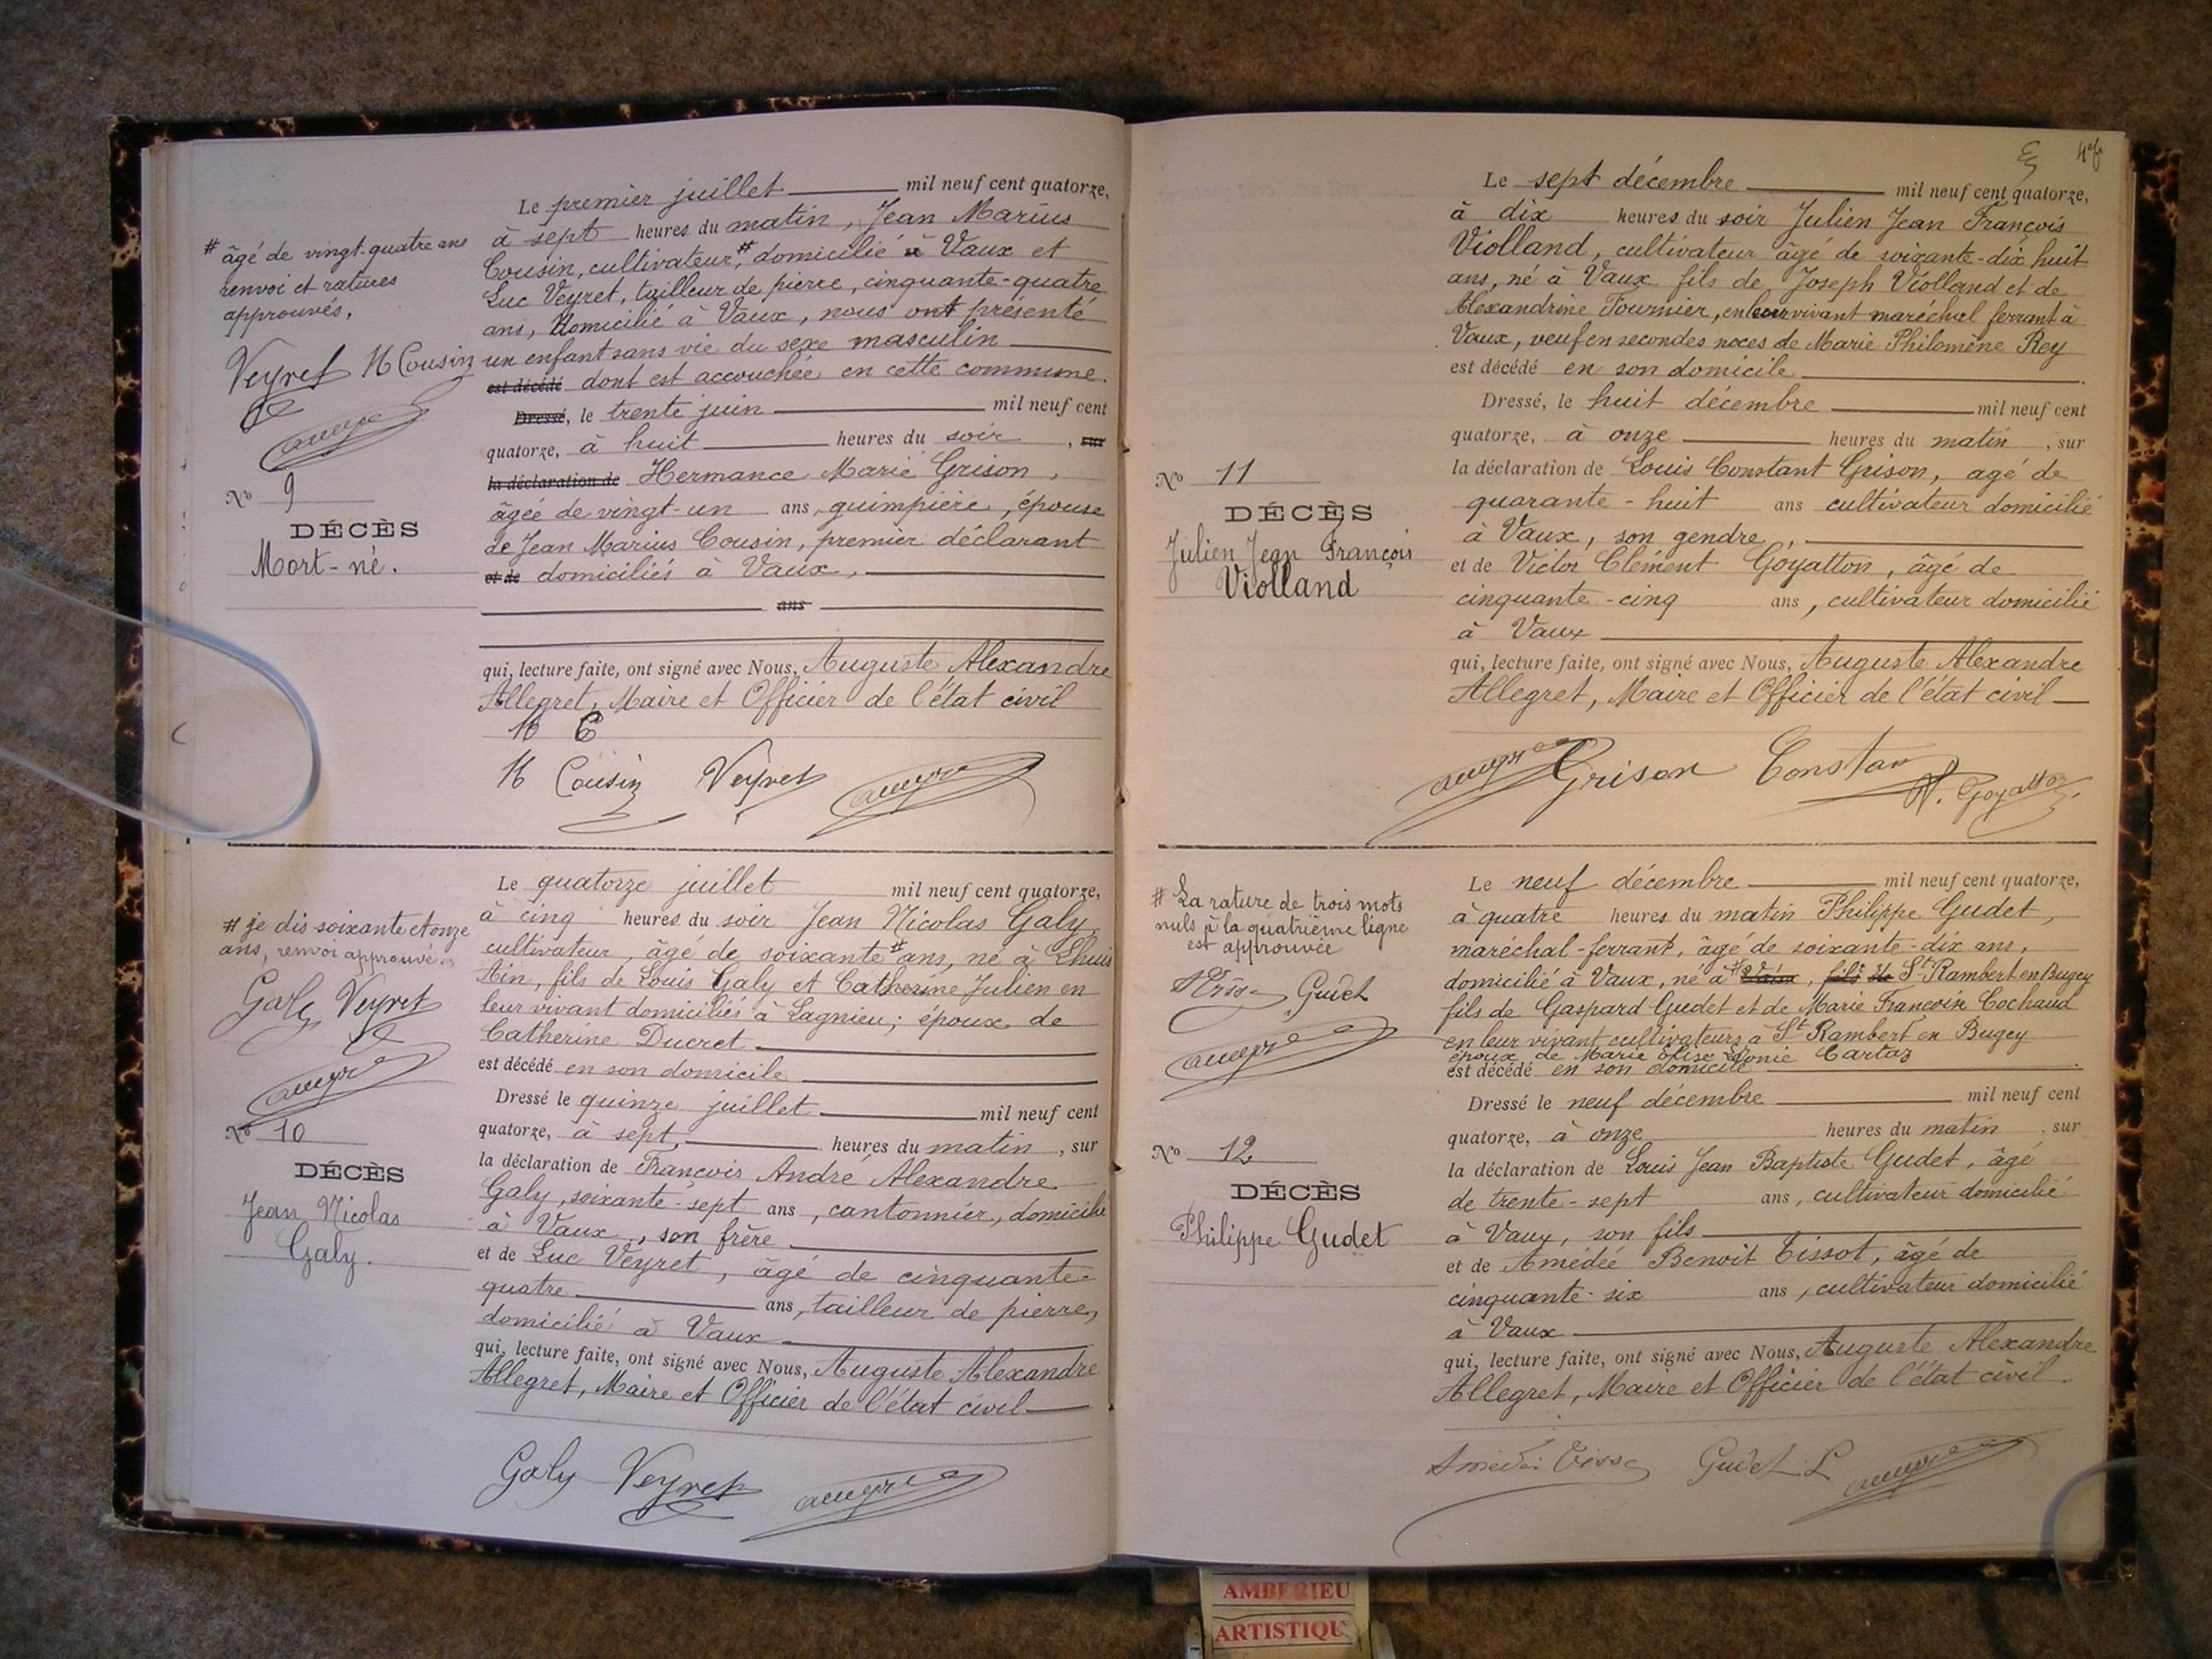 Le premier juillet mil neuf cent quatorze,
à sept heures du matin, Jean Marius
Cousin, cultivateur,# domicilié à Vaux et
Luc Veyret, tailleur de pierre, cinquante-quatre
ans, domicilié à Vaux, nous ont présenté
un enfant sans vie du sexe masculin
est décédé dont est accouchée en cette commune.
Dressé, le trente juin mil neuf cent
quatorze, à huit heures du soir, sur
la déclaration de Hermance Marie Grison,
âgée de vingt-un ans, guimpière, épouse
de Jean Marius Cousin, premier déclarant
et de domiciliés à Vaux,
ans
qui, lecture faite, ont signé avec Nous, Auguste Alexandre
Allegret, Maire et Officier de l'état civil
M C
M Cousin Veyret
# âgé de vingt-quatre ans
renvoi et ratures
approuvés,
Veyret M Cousin
No 9
DÉCÈS
Mort-né.
Le quatorze juillet mil neuf cent quatorze,
à cinq heures du soir Jean Nicolas Galy,
cultivateur, âgé de soixante # ans, né à Lhuis
Ain, fils de Louis Galy et Catherine Julien en
leur vivant domiciliés à Lagnieu; époux de
Catherine Ducret
est décédé en son domicile
Dressé le quinze juillet mil neuf cent
quatorze, à sept, heures du matin, sur
la déclaration de François André Alexandre
Galy, soixante-sept ans, cantonnier, domicilié
à Vaux, son frère
et de Luc Veyret, âgé de cinquante-
quatre ans, tailleur de pierre,
domicilié à Vaux
qui, lecture faite, ont signé avec Nous, Auguste Alexandre
Allegret, Maire et Officier de l'état civil
Galy Veyret
# je dis soixante et onze
ans, renvoi approuvé
Galy Veyret
No 10
DÉCÈS
Jean Nicolas
Galy.
Le sept décembre mil neuf cent quatorze,
à dix heures du soir Julien Jean François
Violland, cultivateur âgé de soixante-dix huit
ans, né à Vaux fils de Joseph Violland et de
Alexandrine Fournier, en leur vivant maréchal ferrant à
Vaux, veuf en secondes noces de Marie Philomène Rey
est décédé en son domicile
Dressé, le huit décembre mil neuf cent
quatorze, à onze heures du matin, sur
la déclaration de Louis Constant Grison, agé de
quarante-huit ans cultivateur domicilié
à Vaux, son gendre,
et de Victor Clément Goyatton, âgé de
cinquante-cinq ans, cultivateur domicilié
à Vaux
qui, lecture faite, ont signé avec Nous, Auguste Alexandre
Allegret, Maire et Officier de l'état civil
Grison Constan
No 11
DÉCÈS
Julien Jean François
Violland
Le neuf décembre mil neuf cent quatorze,
à quatre heures du matin Philippe Gudet,
maréchal-ferrant, âgé de soixante-dix ans,
domicilié à Vaux, né à # Vaux, fils de St Rambert en Bugey
fils de Gaspard Gudet et de Marie Françoise Cochaud
en leur vivant cultivateurs à St Rambert en Bugey
époux de Marie Élise Cartaz
est décédé en son domicile
Dressé le neuf décembre mil neuf cent
quatorze, à onze heures du matin, sur
la déclaration de Louis Jean Baptiste Gudet, âgé
de trente-sept ans, cultivateur domicilié
à Vaux, son fils
et de Amédée Benoit Tissot, âgé de
cinquante-six ans, cultivateur domicilié
à Vaux
qui, lecture faite, ont signé avec Nous, Auguste Alexandre
Allegret, Maire et Officier de l'état civil.
Gudet L
# La rature de trois mots
nuls à la quatrième ligne
est approuvée
Gudet
No 12
DÉCÈS
Philippe Gudet
AMBERIEU
ARTISTIQU